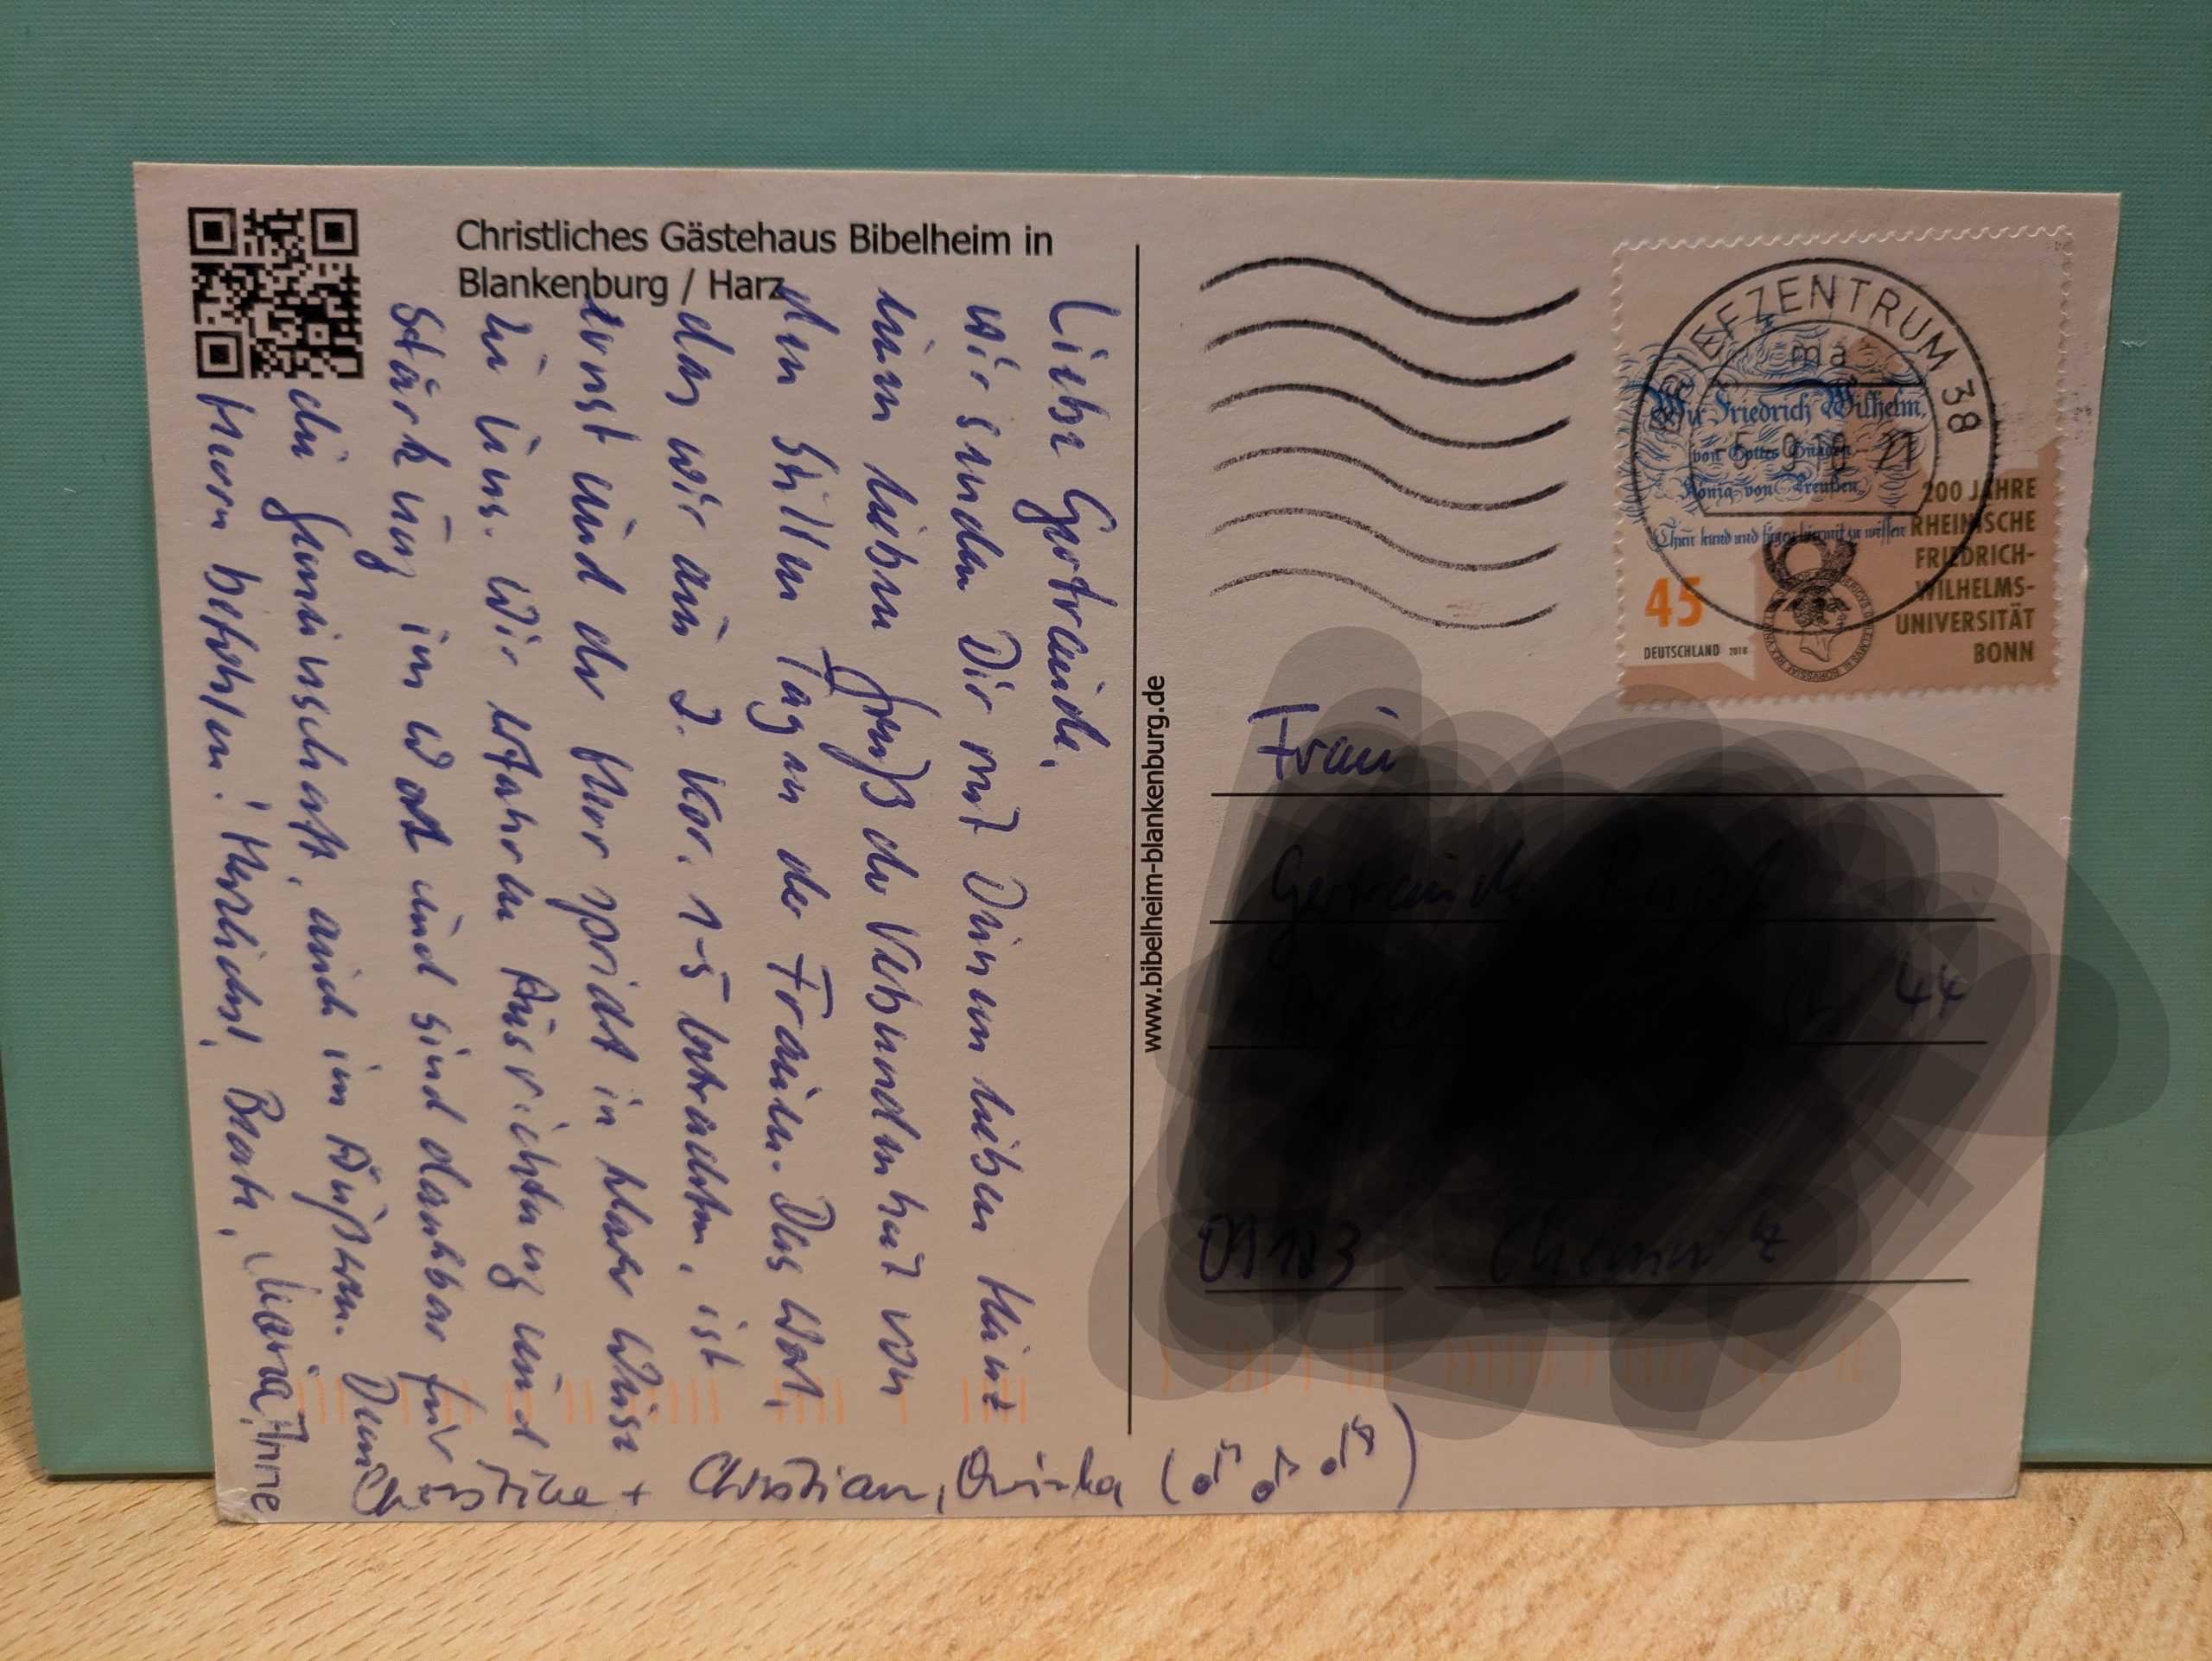 Christliches Gästehaus Bibelheim in
Blankenburg / Harz
Liebe Gertraude,
wir senden Dir mit Deinem lieben Heinz
einen lieben Gruß der Verbundenheit von
den Stillen Tagen der Frauen. Das Wort,
das wir aus 2. Kor. 1-5 betrachten, ist
ernst und der Herr spricht in klarer Weise
zu uns. Wir erfahren Ausrichtung und
Stärkung im Wort und sind dankbar für
die Gemeinschaft, auch im Äußeren. Dem
Herrn befohlen! Herzlichst Beate, Maria, Anne
Christine + Christian,
www.bibelheim-blankenburg.de
BRIEFZENTRUM 38
ma
Wir Friedrich Wilhelm,
von Gottes Gnaden
König von Preußen,
Thun kund und fügen hiermit zu wissen
200 JAHRE
RHEINISCHE
FRIEDRICH-
WILHELMS-
UNIVERSITÄT
BONN
45
DEUTSCHLAND 2018
Frau
Gertraude
44
Chemnitz